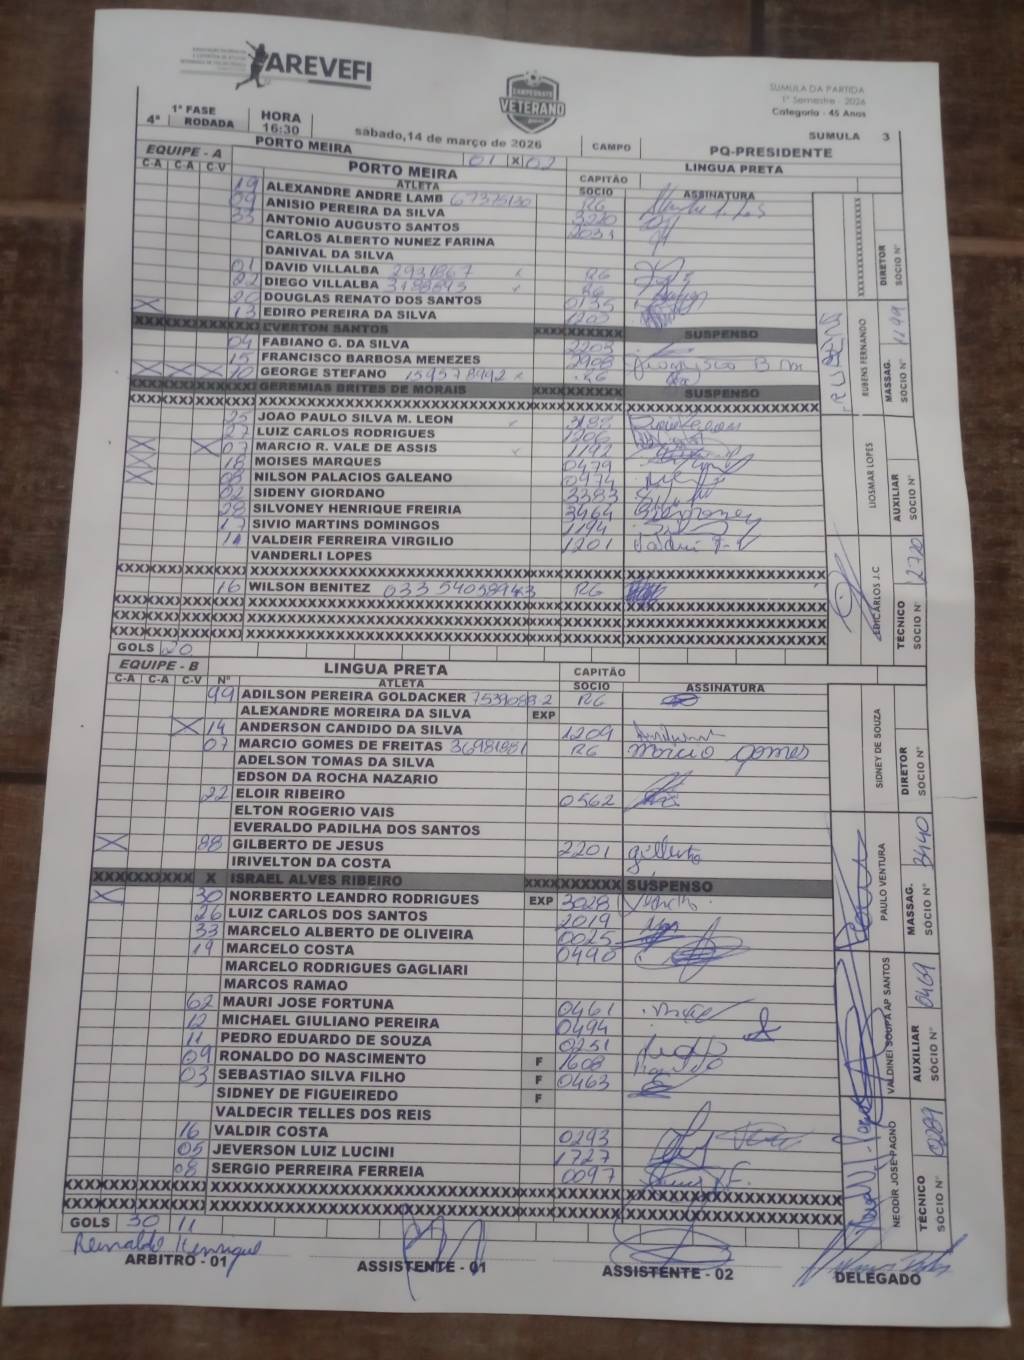 AREVEFI
CAMPEONATO
VETERANO
SUMULA DA PARTIDA
1º Semestre - 2026
Categoria - 45 Anos
1ª FASE
4ª RODADA
HORA
16:30
sábado,14 de março de 2026
CAMPO
PQ-PRESIDENTE
SUMULA 3
PORTO MEIRA 01 X 02 LINGUA PRETA
EQUIPE - A PORTO MEIRA CAPITÃO
C-A C-A C-V ATLETA SOCIO ASSINATURA
19 ALEXANDRE ANDRE LAMB RG
09 ANISIO PEREIRA DA SILVA 3220
33 ANTONIO AUGUSTO SANTOS 2031
CARLOS ALBERTO NUNEZ FARINA
DANIVAL DA SILVA
01 DAVID VILLALBA 2931867 RG
22 DIEGO VILLALBA RG
20 DOUGLAS RENATO DOS SANTOS 0135
X 13 EDIRO PEREIRA DA SILVA 1202
XXXXXXXXXXXXX EVERTON SANTOS XXXXXXXXXX SUSPENSO
04 FABIANO G. DA SILVA 2203
15 FRANCISCO BARBOSA MENEZES 2908 Francisco B M
X X X 10 GEORGE STEFANO RG
XXXXXXXXXXXXX GEREMIAS BRITES DE MORAIS XXXXXXXXXX SUSPENSO
25 JOAO PAULO SILVA M. LEON 3188
27 LUIZ CARLOS RODRIGUES 1206
X X 07 MARCIO R. VALE DE ASSIS 1192
X 18 MOISES MARQUES 0479
X 08 NILSON PALACIOS GALEANO 0474
02 SIDENY GIORDANO 3383
28 SILVONEY HENRIQUE FREIRIA 3464
17 SIVIO MARTINS DOMINGOS 1194
VALDEIR FERREIRA VIRGILIO 1201
VANDERLI LOPES
16 WILSON BENITEZ 033 54058943 RG
GOLS 20
DIRETOR SOCIO N°
RUBENS FERNANDO MASSAG. SOCIO N° 1199
LIOSMAR LOPES AUXILIAR SOCIO N°
J.C TÉCNICO SOCIO N° 2720
EQUIPE - B LINGUA PRETA CAPITÃO
C-A C-A C-V N° ATLETA SOCIO ASSINATURA
99 ADILSON PEREIRA GOLDACKER RG
ALEXANDRE MOREIRA DA SILVA EXP
X 14 ANDERSON CANDIDO DA SILVA 1209
07 MARCIO GOMES DE FREITAS 36981881 RG Marcio Gomes
ADELSON TOMAS DA SILVA
EDSON DA ROCHA NAZARIO
22 ELOIR RIBEIRO 0562
ELTON ROGERIO VAIS
EVERALDO PADILHA DOS SANTOS
X 88 GILBERTO DE JESUS 2201 Gilberto
IRIVELTON DA COSTA
XXXXXXXX X ISRAEL ALVES RIBEIRO XXXXXXXXXX SUSPENSO
X 30 NORBERTO LEANDRO RODRIGUES EXP 3028
26 LUIZ CARLOS DOS SANTOS 2019
33 MARCELO ALBERTO DE OLIVEIRA 0025
19 MARCELO COSTA 0490
MARCELO RODRIGUES GAGLIARI
MARCOS RAMAO
62 MAURI JOSE FORTUNA 0461
12 MICHAEL GIULIANO PEREIRA 0494
11 PEDRO EDUARDO DE SOUZA 0251
09 RONALDO DO NASCIMENTO F 1608
03 SEBASTIAO SILVA FILHO F 0463
SIDNEY DE FIGUEIREDO F
VALDECIR TELLES DOS REIS
16 VALDIR COSTA 0293
05 JEVERSON LUIZ LUCINI 1727
08 SERGIO PERREIRA FERREIA 0097
GOLS 30 11
SIDNEY DE SOUZA DIRETOR SOCIO N°
PAULO VENTURA MASSAG. SOCIO N° 3440
VALDINEI SOUPA AP SANTOS AUXILIAR SOCIO N° 0469
NEODIR JOSE PAGNO TÉCNICO SOCIO N° 0289
Reinaldo Henrique
ARBITRO - 01
ASSISTENTE - 01
ASSISTENTE - 02
DELEGADO